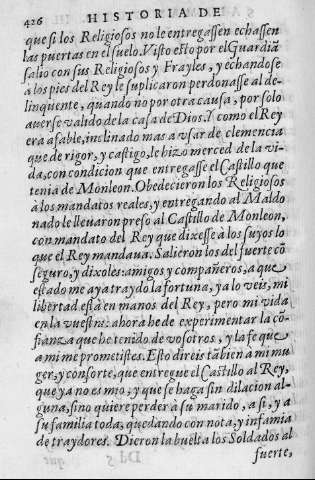 426 HISTORIA DE
que si los Religiosos no le entregassen echassen
las puertas en el suelo. Visto esto por el Guardiã
salio con sus Religiosos y Frayles, y echandose
à los pies del Rey le suplicaron perdonasse al de-
linquente, quando no por otra causa, por solo
auerse valido de la casa de Dios. Y como el Rey
era afable, inclinado mas a vsar de clemencia
que de rigor, y castigo, le hizo merced de la vi-
da, con condicion que entregasse el Castillo que
tenia de Monleon. Obedecieron los Religiosos
à los mandatos reales, y entregando al Maldo
nado le lleuaron preso al Castillo de Monleon,
con mandato del Rey que dixesse à los suyos lo
que el Rey mandaua. Salieron los del fuerte cõ
seguro, y dixoles: amigos y compañeros, a que
estado me aya traydo la fortuna, ya lo veis, mi
libertad està en manos del Rey, pero mi vida
en la vuestra: ahora he de experimentar la cõ-
fiança que he tenido de vosotros, y la fe que
a mi me prometistes. Esto direis tãbien a mi mu
ger, y consorte, que entregue el Castillo al Rey,
que ya no es mio, y que se haga sin dilacion al-
guna, sino quiere perder à su marido, a si, y a
su familia toda, quedando con nota, y infamia
de traydores. Dieron la buelta los Soldados al
Dd 5
fuerte,